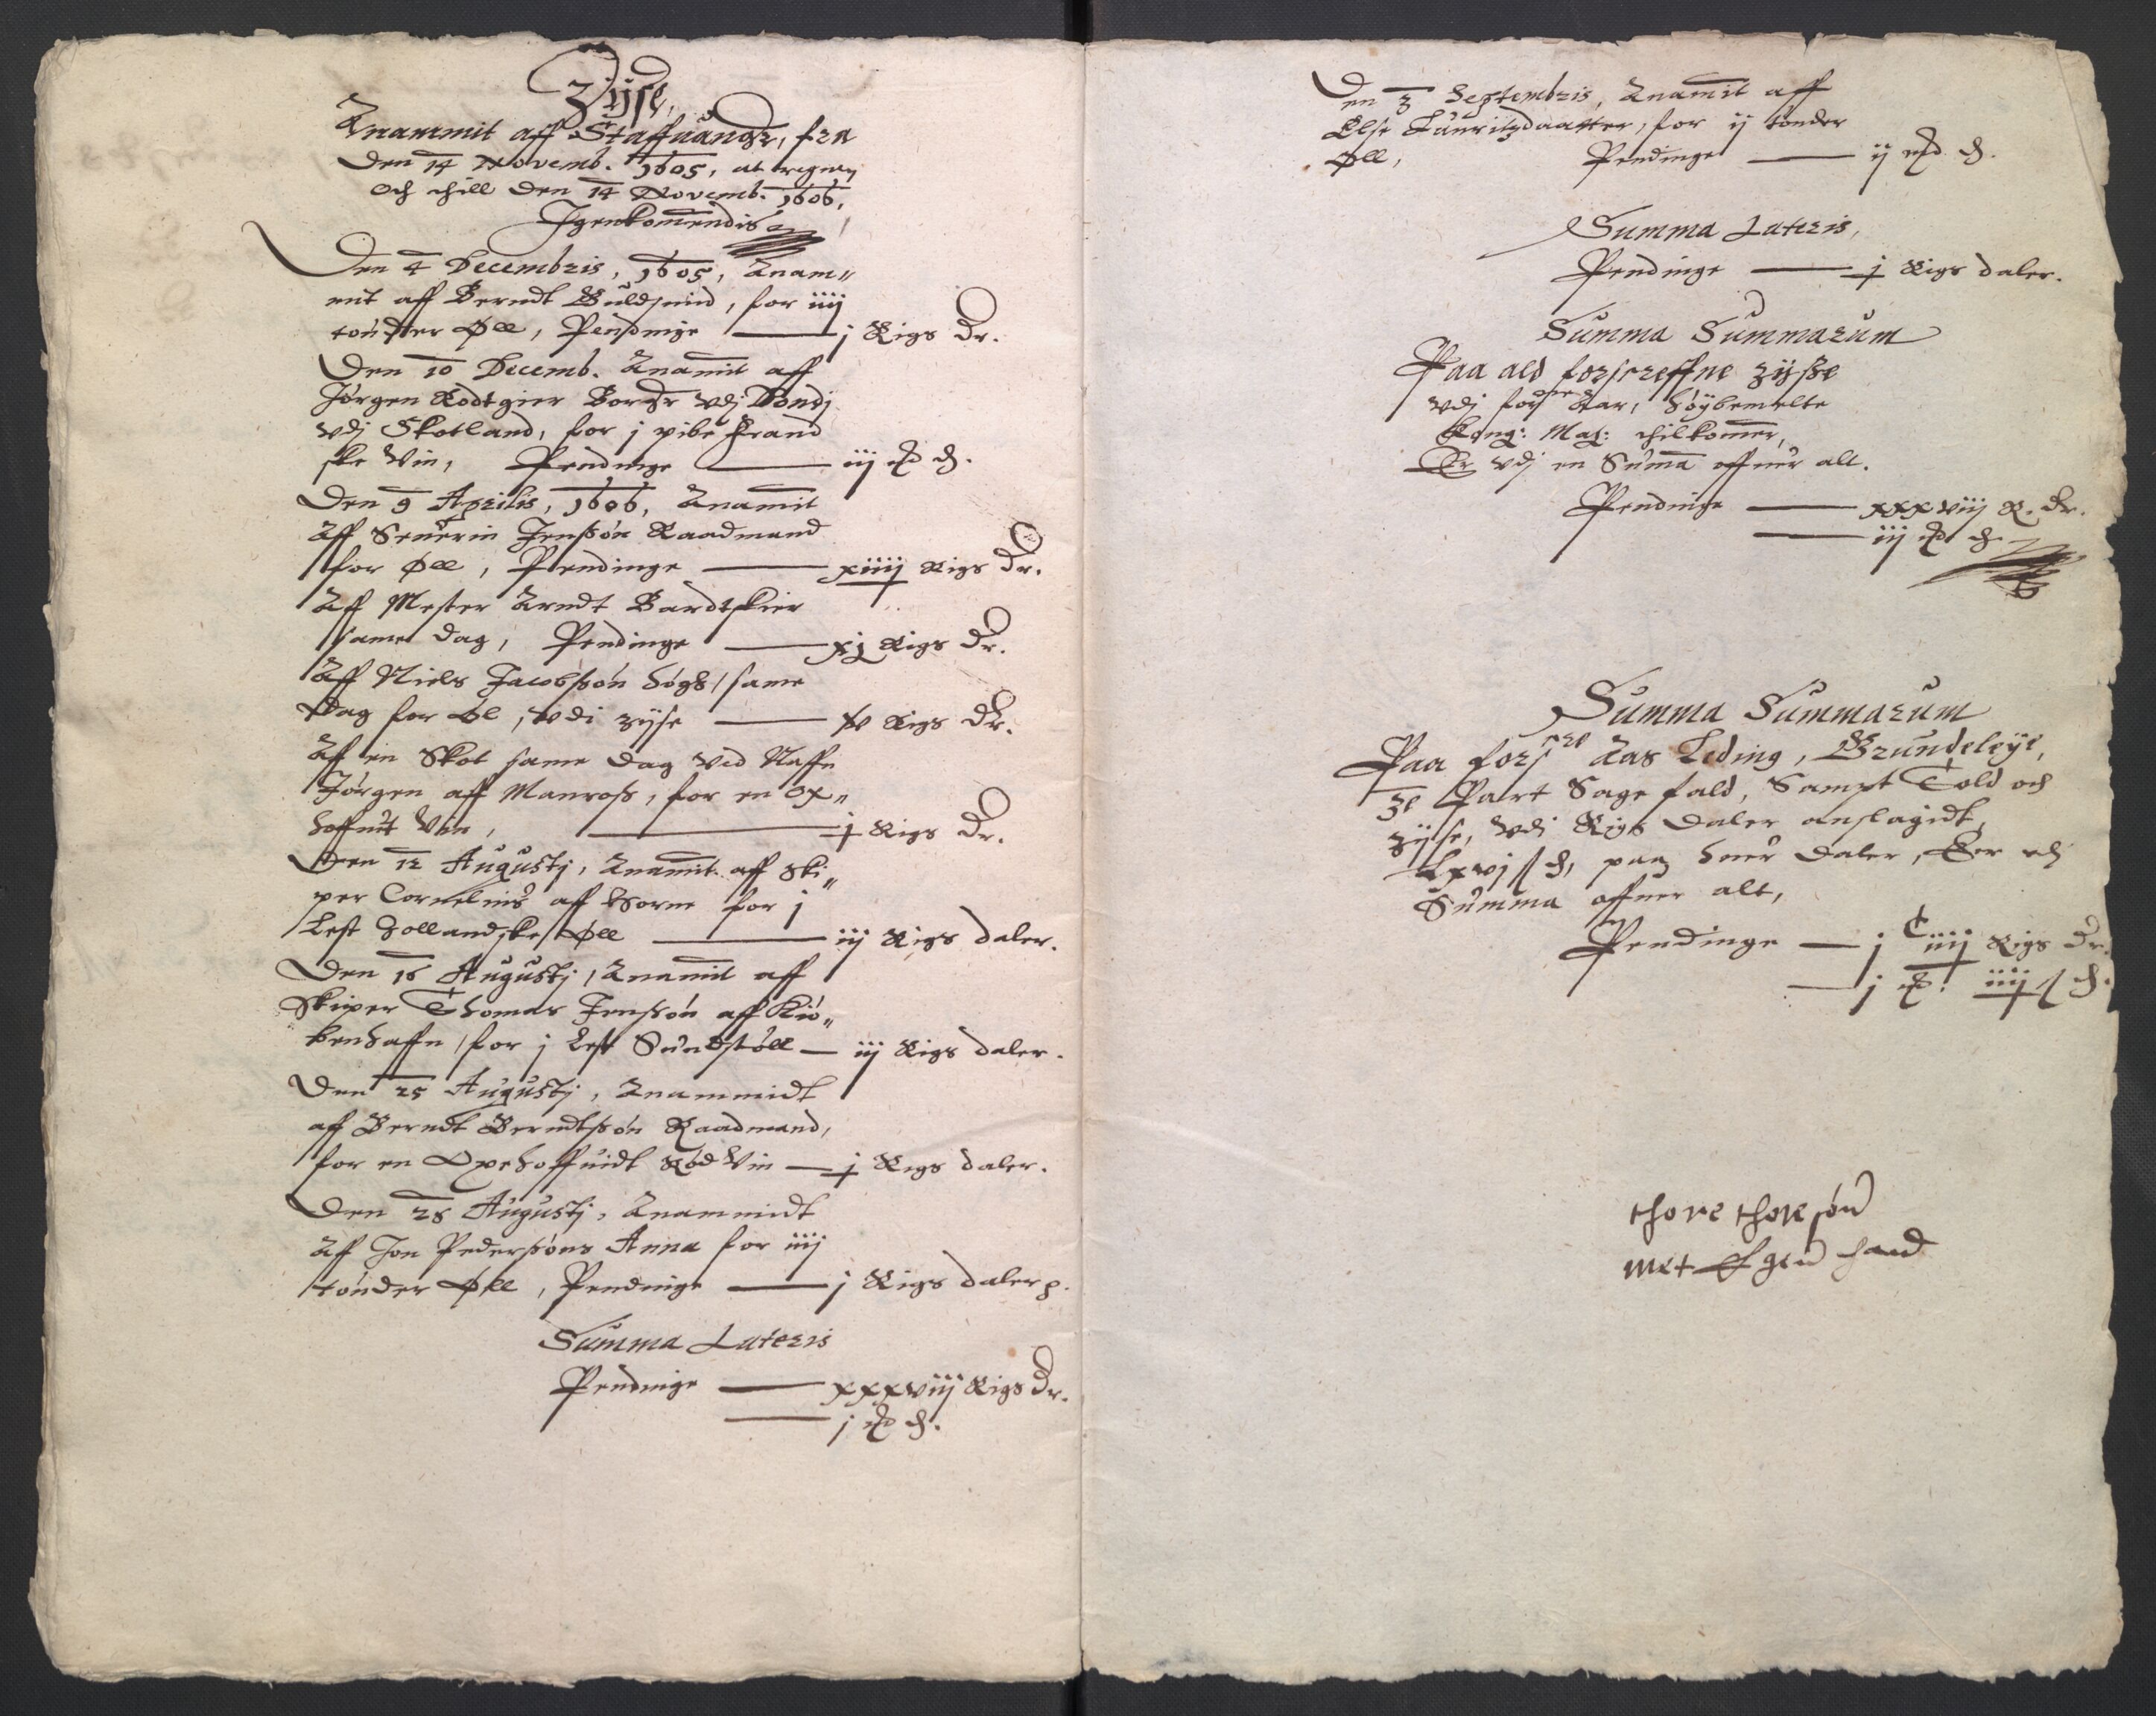 Zijse,
Anammit aff Staffuanger, fra
Den 14 Novemb. 1605, at regne
och thill Den 14 Novemb. 1606,
Igenkommendis
Den 4 Decembris, 1605, Anam„
mit aff Berndt Guldsmid, for iiij
tønder Øll, Pendinge — j Rigs Dr.
Den 10 Decemb. Anamit aff
Jørgen Rodtgier Borger vdj Dondj
vdj Skotland, for j pibe Frand
ske Vin, Pendinge — iij ɱ d.
Den 9 Aprilis, 1606, Anamit
Aff Seuerin Jenssøn Raadmand
for Øll, Pendinge — xiiij Rigs Dr.
Aff Mester Arndt Bardtskier
same dag, Pendinge — xj Rigs Dr.
Aff Niels Jacobssøn Høgs, same
Dag for Øl, vdi zijse — Rigs Dr.
Aff en Skot same dag ved Naffn
Jørgen aff Manross, for en Ox„
hoffuit Vin, — j Rigs Dr.
Den 12 Augustj, Anamit aff Ski„
per Cornelius aff Horne for j
Lest Hollandske Øll — iij Rigs daler.
Den 16 Augustj, Anamit aff
Skiper Thomas Jenssøn aff Kiø„
benhaffn, for j Lest Sundstøll — iij Rigs daler.
Den 25 Augustj, Anammidt
aff Berndt Berndtssøn Raadmand,
for en Oxehoffuidt Rød Vin — j Rigs daler.
Den 28 Augustj, Anammidt
Aff Jon Pederssøns Anna for iiij
tønder Øll, Pendinge — j Rigs daler
Summa Lateris
Pendinge — xxxviij Rigs Dr.
— j ɱ d.
Den 3 Septembris, Anamit aff
Else Lauritzdaatter, for ij tønder
Øll, Pendinge — ij ɱ d.
Summa Lateris,
Pendinge — j Rigs daler.
Summa Summarum
Paa ald forscreffne zijsse
vdj forschreffne Aar, Høybemelte
Kong: May: thilkommer,
Er vdj en Summa offuer alt.
Pendinge — xxxviij R. dr.
— iij ɱ d.
Summa Summarum
Paa forscre Aars Leding, Grundeleije,
3e Part Sagefald, Sampt Told och
zijse, vdi Rigs Daler anslagidt,
Lxvj ß d, paa huer daler, Er vdj
Summa offuer alt,
Pendinge — j C iiij Rigs Dr.
— j ɱ. iiij ß d.
thore thoresøn
met Egen hand